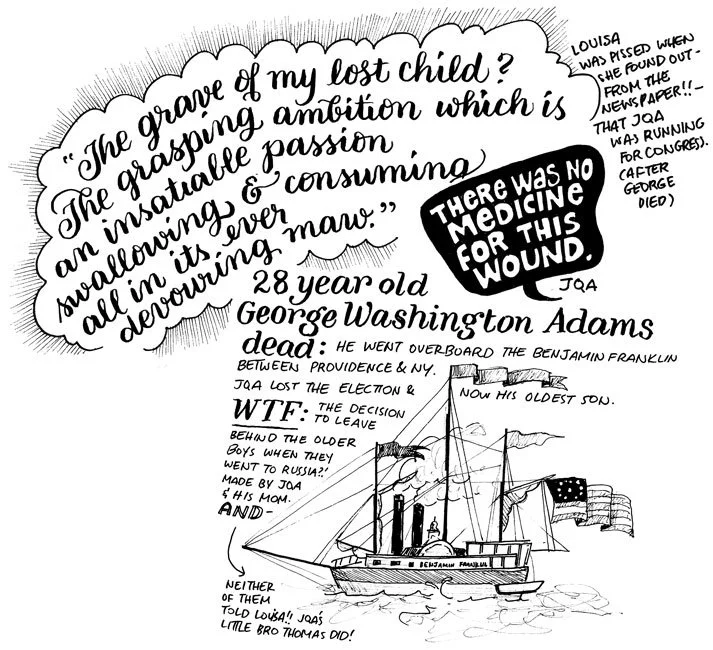 "The grave of my lost child?
The grasping ambition which is
an insatiable passion
swallowing & consuming
all in its ever
devouring maw."
LOUISA
WAS PISSED WHEN
SHE FOUND OUT-
FROM THE
NEWSPAPER!!-
THAT JQA
WAS RUNNING
FOR CONGRESS.
(AFTER
GEORGE
DIED)
THERE WAS NO
MEDICINE
FOR THIS
WOUND.
JQA
28 year old
George Washington Adams
dead: HE WENT OVERBOARD THE BENJAMIN FRANKLIN
BETWEEN PROVIDENCE & NY.
JQA LOST THE ELECTION & NOW HIS OLDEST SON.
WTF: THE DECISION
TO LEAVE
BEHIND THE OLDER
BOYS WHEN THEY
WENT TO RUSSIA?!
MADE BY JQA
& HIS MOM.
AND-
NEITHER
OF THEM
TOLD LOUISA!! JQA'S
LITTLE BRO THOMAS DID!
BENJAMIN FRANKLIN